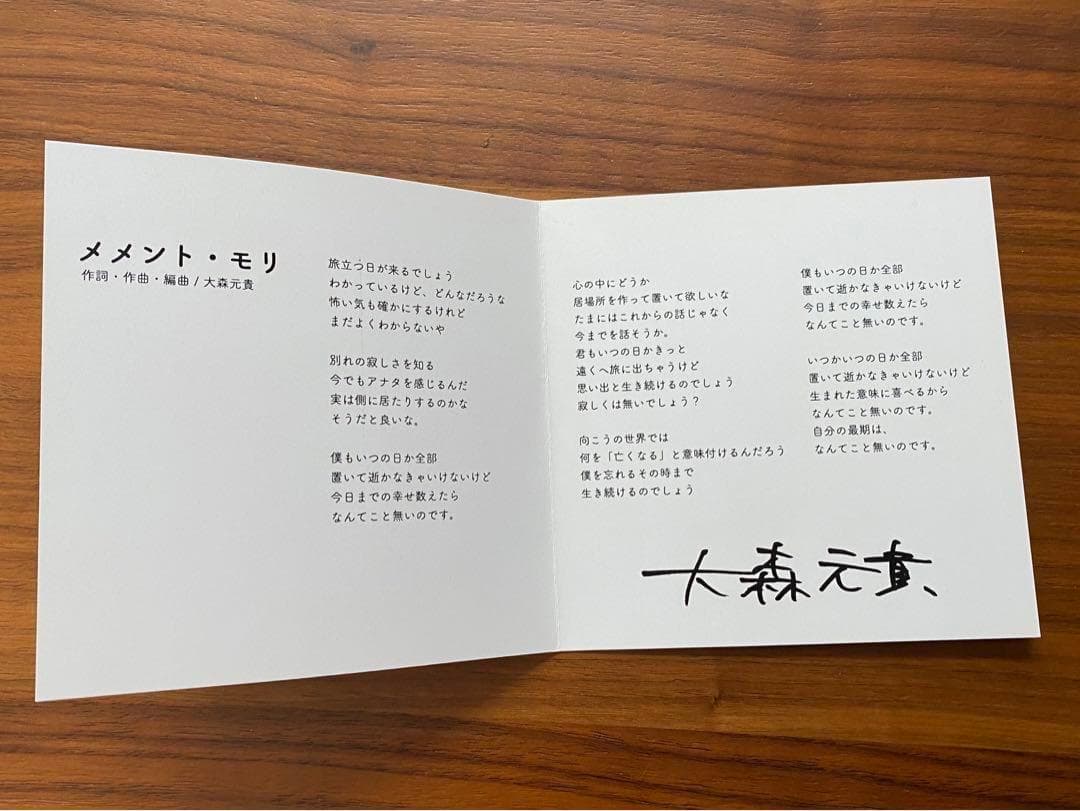 メメント・モリ
作詞・作曲・編曲 / 大森元貴
旅立つ日が来るでしょう
わかっているけど、どんなだろうな
怖い気も確かにするけれど
まだよくわからないや
別れの寂しさを知る
今でもアナタを感じるんだ
実は側に居たりするのかな
そうだと良いな。
僕もいつの日か全部
置いて逝かなきゃいけないけど
今日までの幸せ数えたら
なんてこと無いのです。
心の中にどうか
居場所を作って置いて欲しいな
たまにはこれからの話じゃなく
今までを話そうか。
君もいつの日かきっと
遠くへ旅に出ちゃうけど
思い出と生き続けるのでしょう
寂しくは無いでしょう？
向こうの世界では
何を「亡くなる」と意味付けるんだろう
僕を忘れるその時まで
生き続けるのでしょう
僕もいつの日か全部
置いて逝かなきゃいけないけど
今日までの幸せ数えたら
なんてこと無いのです。
いつかいつの日か全部
置いて逝かなきゃいけないけど
生まれた意味に喜べるから
なんてこと無いのです。
自分の最期は、
なんてこと無いのです。
大森元貴、